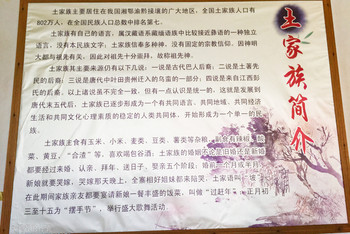 土家族简介
土家族主要居住在我国湘鄂渝黔接壤的广大地区，全国土家族人口有
802万人，在全国民族人口总数中排名第七。
土家族有自己的语言，属汉藏语系藏缅语族中比较接近彝语的一种独立
语言，没有本民族文字；土家族信奉多神神、没有固定的宗教信仰，因神明
大都与祖先有关，因此对祖先十分崇拜，故称祖先神。
土家族其主要来源仍有以下几说：一说是古代巴人后裔，二说是土著先
民的后裔，三说是唐代中叶田贵州迁入的乌蛮的一部分，四说是来自江西彭
氏的后裔，以上诸说虽不完全一致，但有一点认识是统一的，这就是发展到
唐代末五代后，土家族已逐步形成为一个有共同语言、共同地域、共同经济
生活和共同文化心理素质的稳定的人类共同体，开始形成为一个单一的民
族。
土家族主食有玉米、小米、麦类、豆类、薯类等杂粮，副食有辣椒、酸
菜、黄豆，“合渣”等，喜欢喝包谷酒；土家族的婚姻不论是旧婚还是新婚
都要经过来媒、认亲、拜年、送日子、娶亲五个阶段，婚前一个月或半月，
新娘就要哭嫁，哭嫁那天晚上，全寨相好姐妹都来陪哭，
在此期间家族亲友都要宴请新娘一餐丰盛的饭菜，叫做“过赶年”、正月初
三至十五办“摆手节”，举行盛大歌舞活动